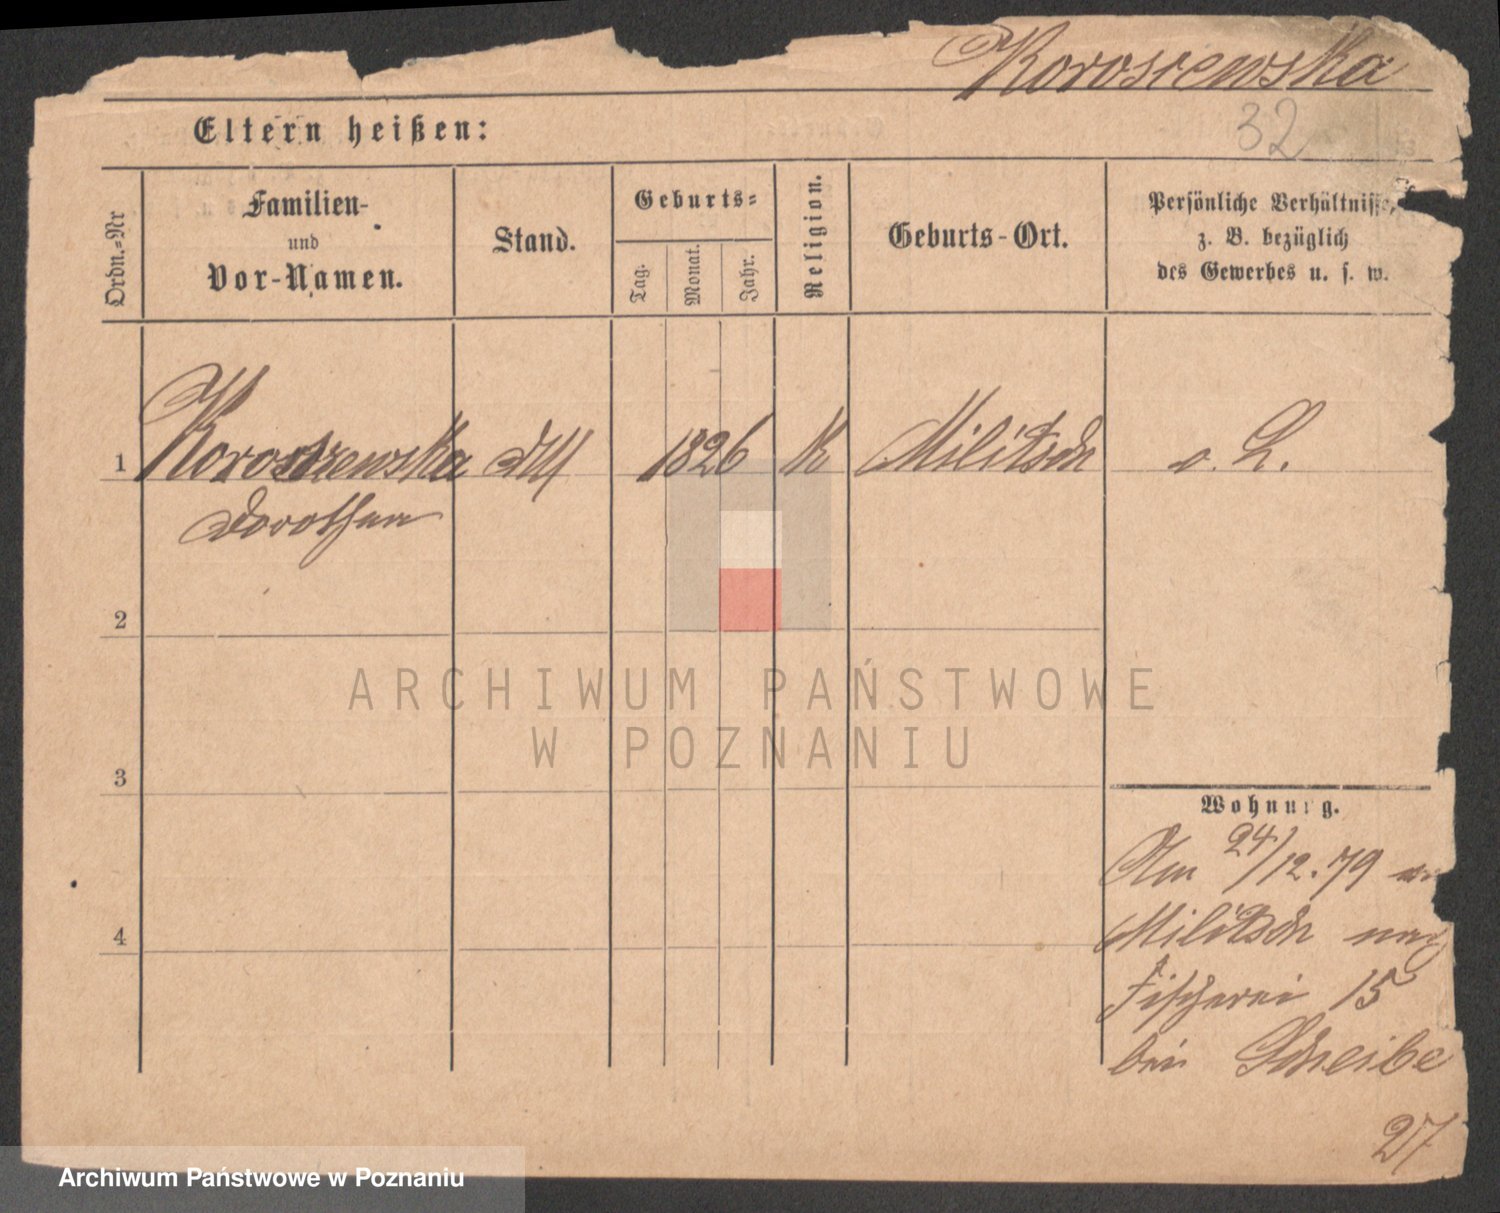 Koroszewska
32
Eltern heißen:
Ordn.-Nr
Familien-
und
Vor-Namen.
Stand.
Geburts-
Tag.
Monat.
Jahr.
Religion.
Geburts-Ort.
Persönliche Verhältnisse,
z. B. bezüglich
des Gewerbes u. s. w.
1 Koroszewska 1826 K Militsch o. L.
Dorothea
2
3
4
Wohnung.
Am 24/12.79
Militsch nach
Fischerei 15
bei Scheibe
27
ARCHIWUM PAŃSTWOWE
W POZNANIU
Archiwum Państwowe w Poznaniu